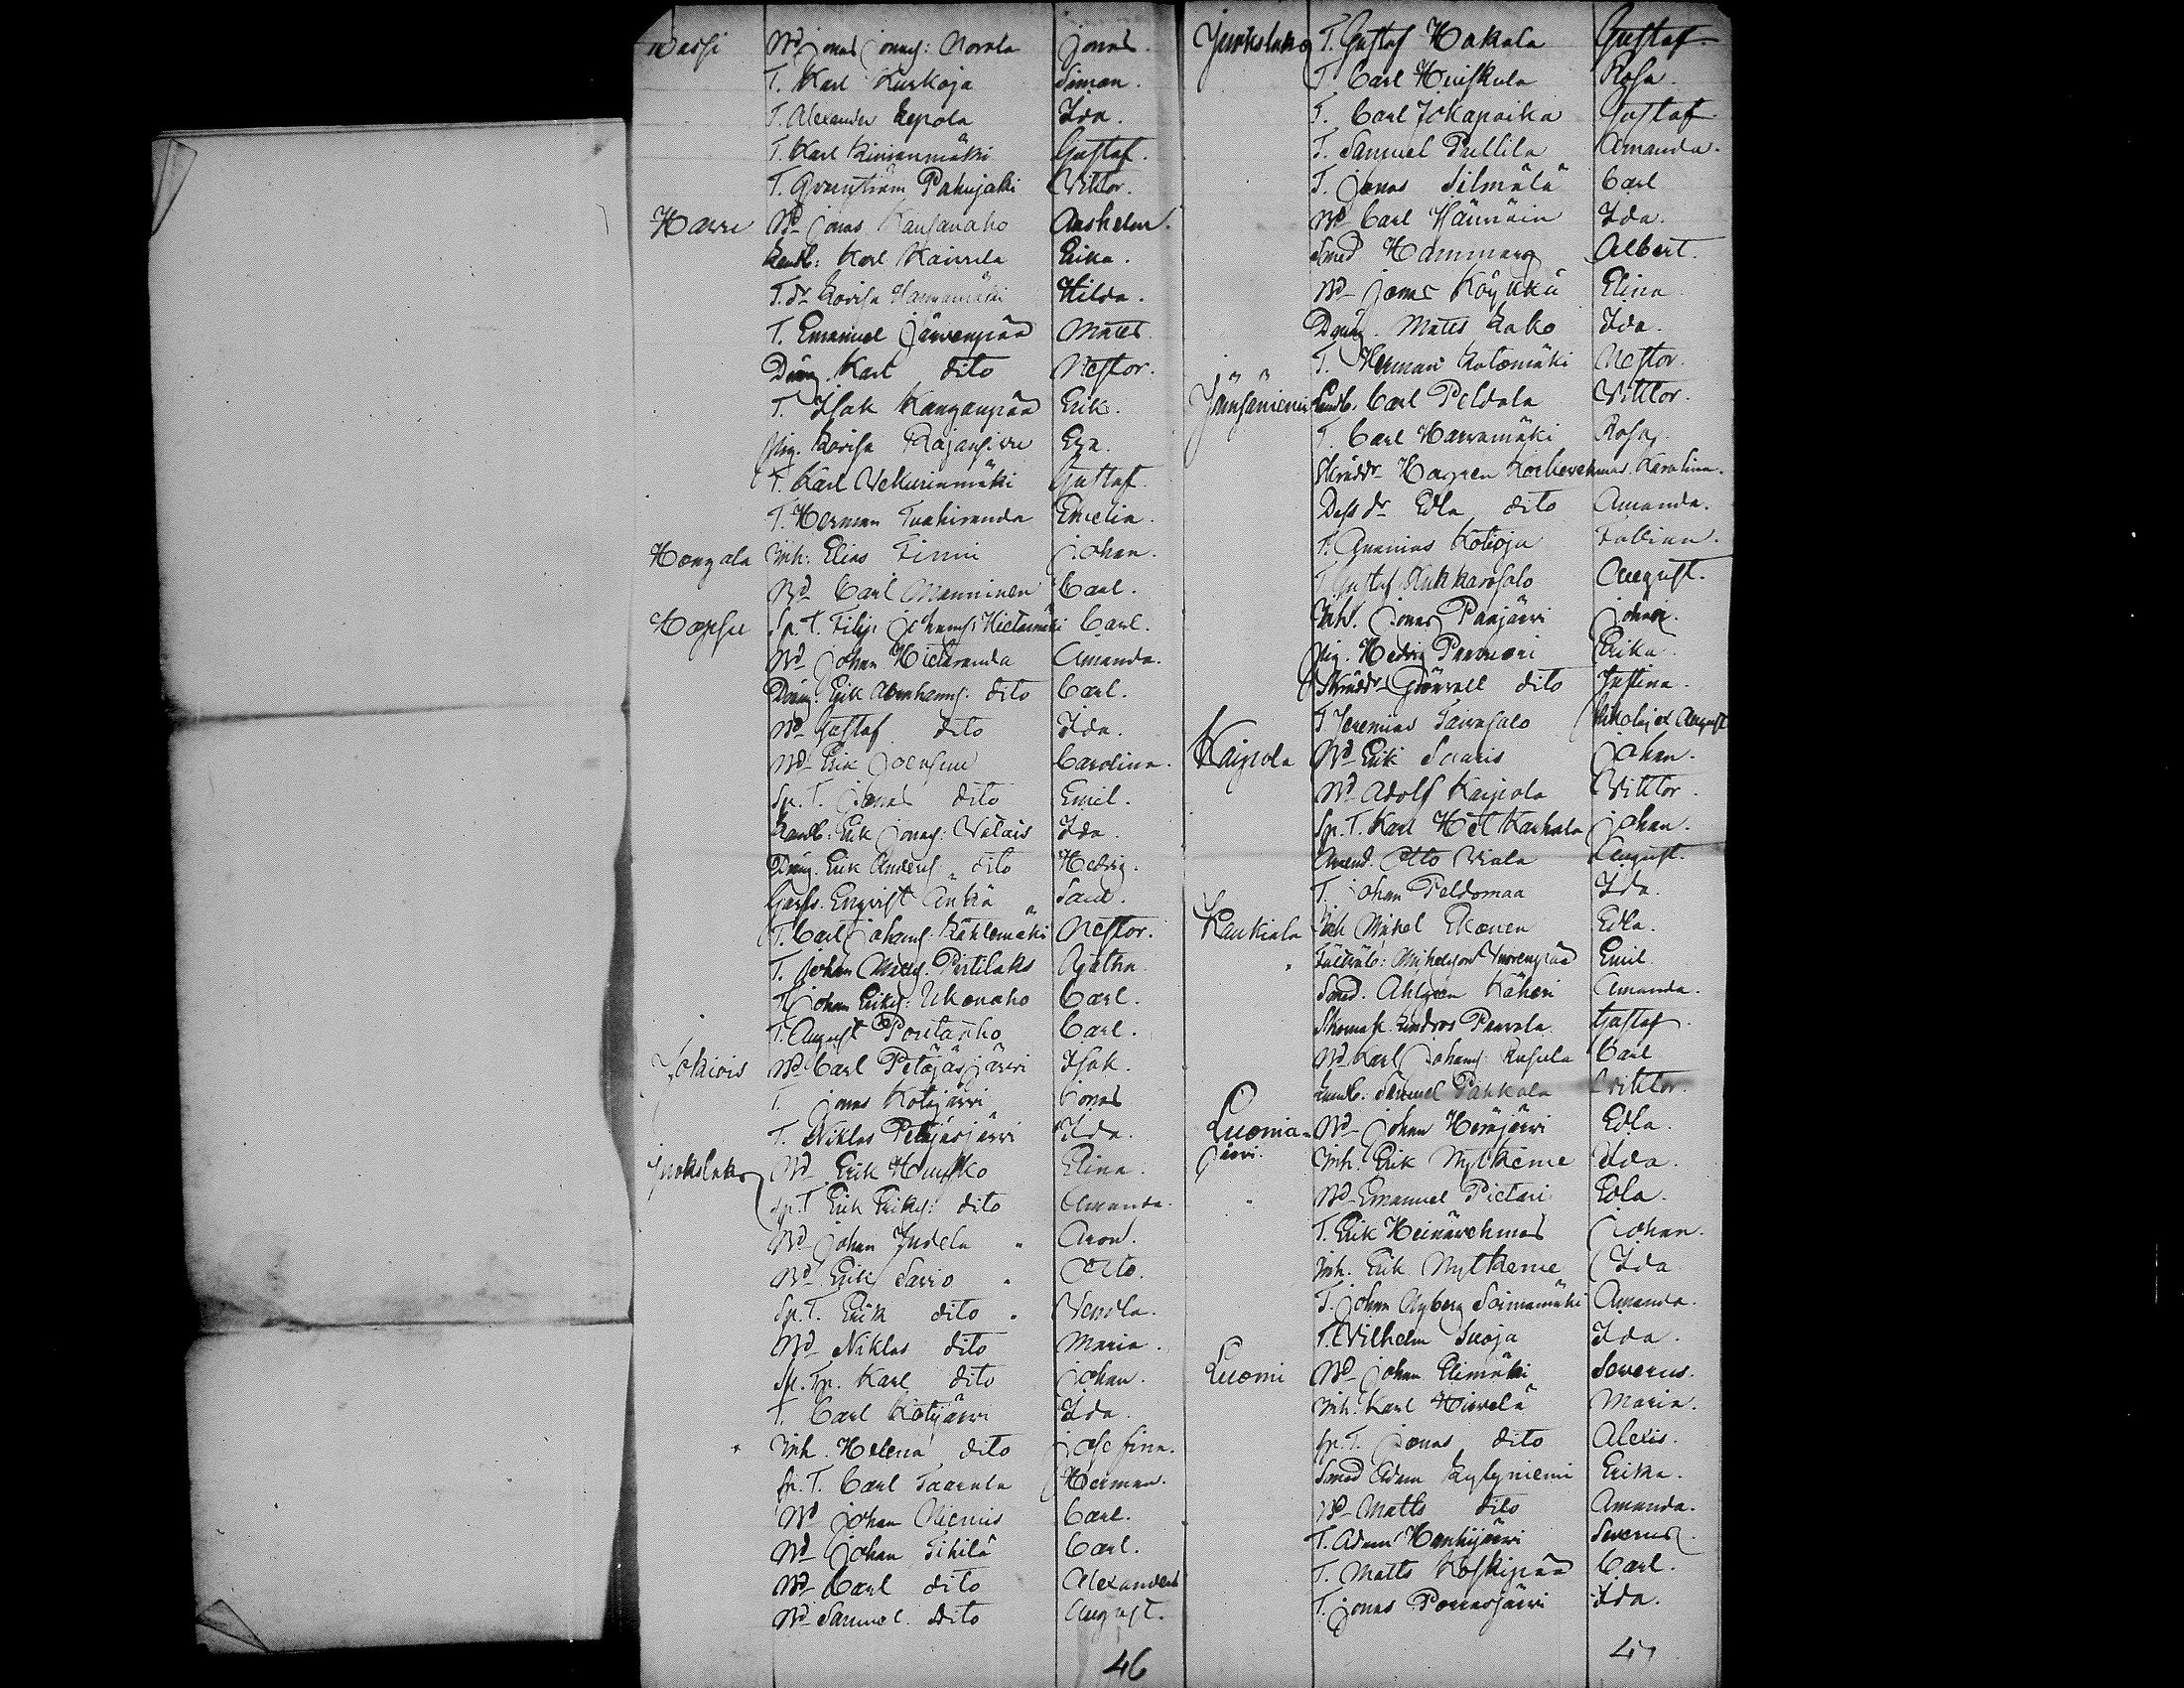 Wd Jonas Jonass: Norola Jonas.
T. Karl Kurkoja Simon.
T. Alexander Lepola Ida.
T. Karl Gustaf.
T. Viktor.
Harri Wd Jonas Kansanaho Anshelm.
Landb: Karl Erika.
T. dr Lovisa Hilda.
T. Emanuel Järvenpää Matts
Dräng. Karl dito Nestor.
T. Isak Kangaspää Erik.
Pig. Lovisa Eva.
T. Karl Wekurinmäki Gustaf.
T. Herman Emelia.
Hongala Inh: Elias Finni Johan.
Wd Carl Manninen Carl.
Sp. T. Filip Johans: Hietamäki Carl.
Wd Johan Hietaranda Amanda.
Dräng. Erik Abrahams: dito Carl.
Wd Gustaf dito Ida.
Wd Erik Joensuu Carolina.
Sp. T. Jonas dito Emil.
Landb: Erik Jonas: Ida
Dräng. Erik Anders " dito Hedvig.
Engvist Saul.
T. Carl Johans: Nestor.
T. Johan Matts. Agatha
T. Johan Eriks: Ukonaho Carl.
T. August Poutanho Carl.
Wd Carl Petäjäsjärvi Isak.
T. Jonas Kotijärvi Jonas
T. Niklas Petäjäsjärvi Ida.
Jurkslaks Wd Erik Huisko Elina.
Sp. T. Erik Eriks: dito Amanda.
Wd Johan Judela " Aron.
Wd Erik Savio " Otto.
Sp. T. Erik dito " Vendla.
Wd Niklas dito Maria.
Sp. Tp. Karl dito Johan.
T. Carl Kotijärvi Ida.
Inh. Helena dito Josefina.
Sp. T. Carl Taarala Herman.
Wd Johan Niemis Carl.
Wd Johan Tikilä Carl.
Wd Carl dito Alexander
Wd Samuel dito August.
46
Jurkslaks T. Gustaf Hakala Gustaf.
T. Carl Huiskula Rosa.
T. Carl Jokapaika Gustaf.
T. Samuel Pullila Amanda.
T. Jonas Silmälä Carl
Wd Carl Hänninin Ida.
Smed Hammarg Albert.
Wd Jonas Köykkä Elina
Dräng. Matts Kako Ida.
T. Herman Katomäki Nestor.
Jänsäniemi Landb. Carl Peldola Viktor.
T. Carl Harramäki Rosa.
Skräddr Hagren Karolina.
Dess dr Edla dito Amanda.
T. Ananias Kotioja Fabian.
T. Gustaf Kukkarosalo August.
Inh. Jonas Paajärvi Johan.
Pig. Hedvig Erika.
Skräddr Grönvall dito Justina.
T. Jeremias Taivasalo Nikolaj ol August
Kaipola Wd Erik Saaris Johan.
Wd Adolf Kaipola Viktor.
Sp. T. Karl Karhala Johan.
Arend. Otto Wiala August.
T. Johan Peldomaa Ida.
Kaukiala Inh Mikel Ekonen Edla.
Emil
Smed. Ahlgren Käheri Amanda.
Skomak. Lindros Paavola Gustaf.
Wd Karl Johans: Rusula Carl
Landb. Samuel Pakkala Viktor.
Luomajärvi. Wd Johan Heräjärvi Edla.
Inh. Erik Nytkeme Ida.
" Wd Emanuel Pietari Edla.
T. Erik Heinävehmas Johan.
Inh. Erik Nytkeme Ida
T. Johan Nyberg Soimamäki Amanda.
T. Vilhelm Suoja Ida.
Luomi Wd Johan Elimäki Severus.
Inh. Karl Hirvelä Maria.
Sp. T. Jonas dito Alexis.
Smed Adam Kylyniemi Erika.
Wd Matts dito Amanda.
T. Adam Hankijärvi Severus.
T. Matts Koskipää Carl.
T. Jonas Porrasjärvi Ida.
47